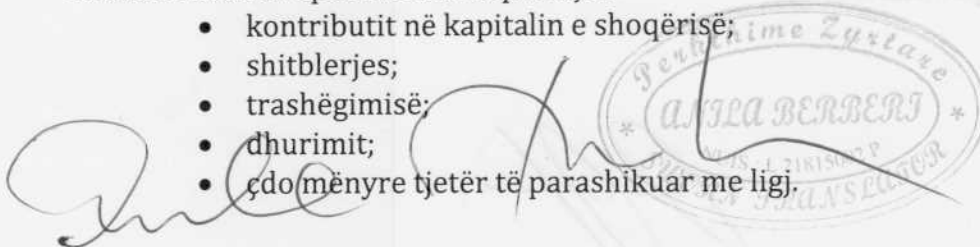 • kontributit në kapitalin e shoqërisë;
• shitblerjes;
• trashëgimisë;
• dhurimit;
• çdo mënyre tjetër të parashikuar me ligj.
Përkthime Zyrtare
* ANILA BERBERI *